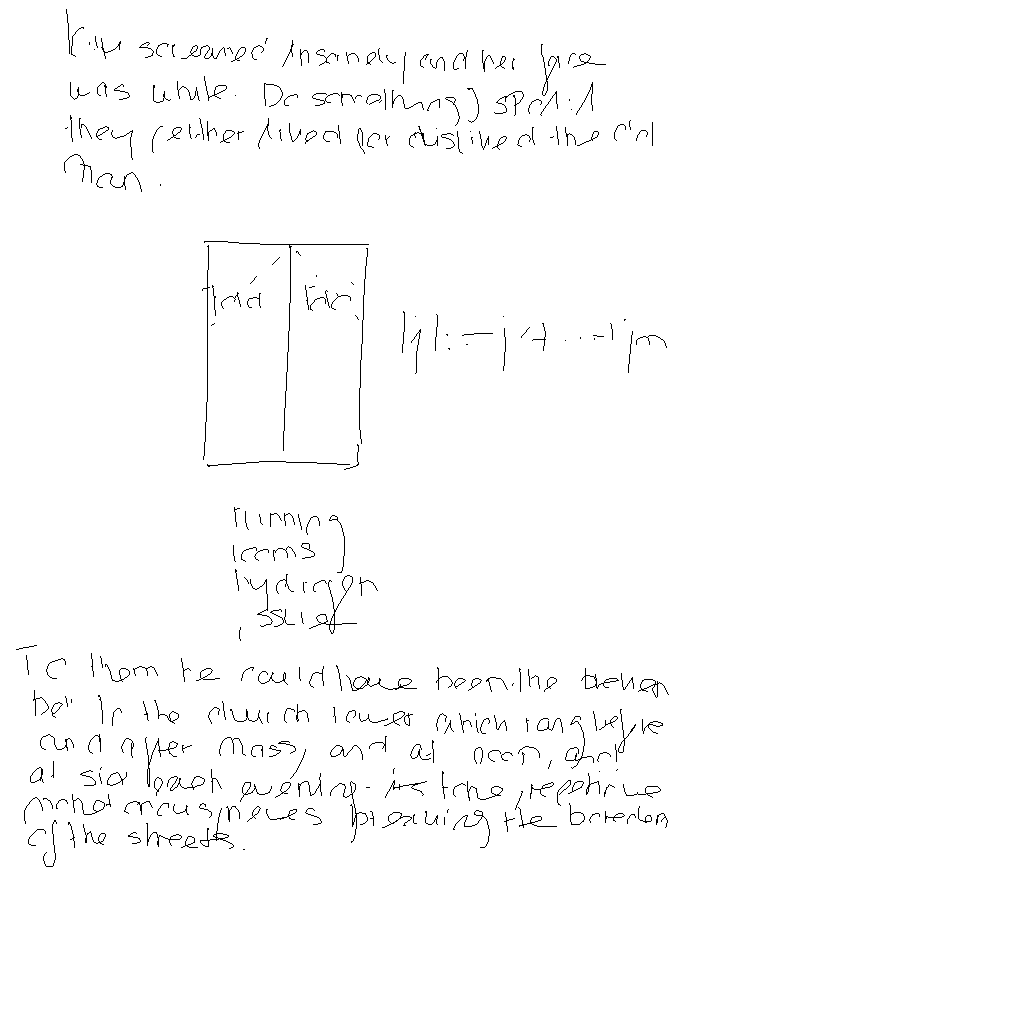 screamed insanely and her face
was white. Do something
they neither liked nor disliked the old
man.
running
looms
hydrogen
issue
To them he could have been the broken
bell in the church tower which rang before
and after Mass, and at noon, and
at six each evening - its tone, repetitive
monotonous, never breaking the boredom
of the streets.